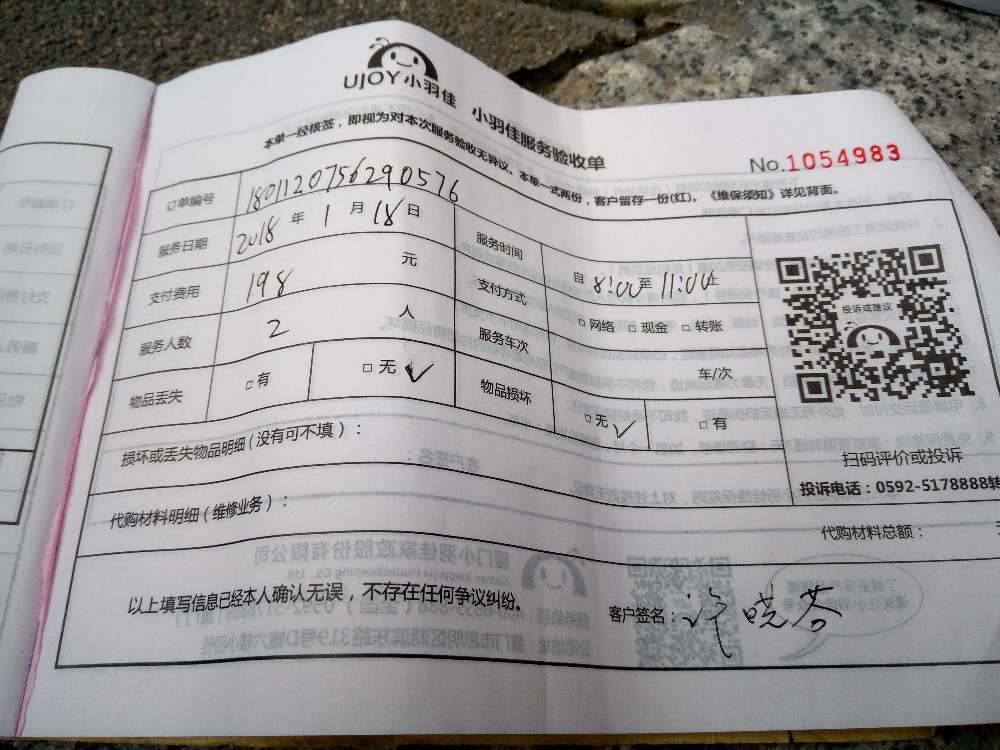 UJOY小羽佳 小羽佳服务验收单
No.1054983
本单一经核签，即视为对本次服务验收无异议、本单一式两份，客户留存一份(红)。《维保须知》详见背面。
订单编号 1801120756290576
服务日期 2018 年 1 月 18 日 服务时间 自 8:00 至 11:00 止
支付费用 198 元 支付方式 □ 网络 □ 现金 □ 转账
服务人数 2 人 服务车次 车/次
物品丢失 □ 有 □ 无 ✓ 物品损坏 □ 无 ✓ □ 有
投诉或建议
扫码评价或投诉
投诉电话：0592-5178888转
损坏或丢失物品明细（没有可不填）：
代购材料明细（维修业务）：
代购材料总额：
以上填写信息已经本人确认无误，不存在任何争议纠纷。
客户签名：许晓芬